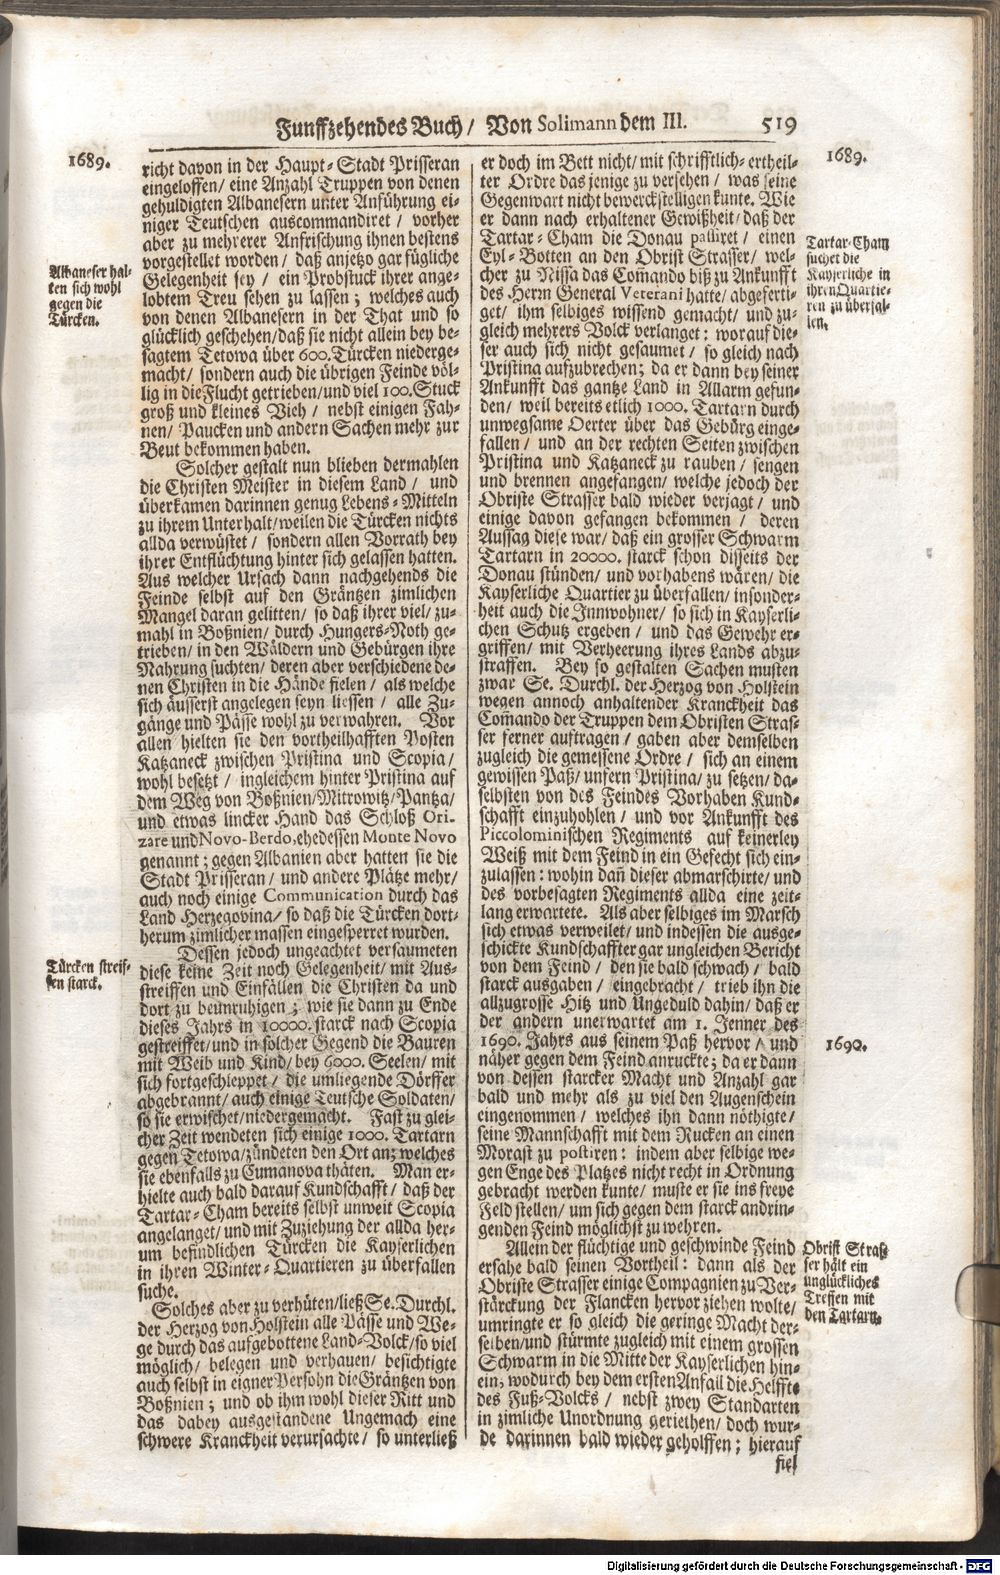 Funffzehendes Buch/ Von Solimann dem III. 519
1689.
richt davon in der Haupt-Stadt Prisseran
eingeloffen/ eine Anzahl Truppen von denen
gehuldigten Albanesern unter Anführung ei-
niger Teutschen auscommandiret / vorher
aber zu mehrerer Anfrischung ihnen bestens
vorgestellet worden / daß anjetzo gar fügliche
Gelegenheit sey / ein Probstuck ihrer ange-
lobtem Treu sehen zu lassen; welches auch
von denen Albanesern in der That und so
glücklich geschehen/ daß sie nicht allein bey be-
sagtem Tetowa über 600. Türcken niederge-
macht/ sondern auch die übrigen Feinde völ-
lig in die Flucht getrieben/und viel 100. Stuck
groß und kleines Vieh / nebst einigen Fah-
nen/ Paucken und andern Sachen mehr zur
Beut bekommen haben.
Albaneser hal-
ten sich wohl
gegen die
Türcken.
Solcher gestalt nun blieben dermahlen
die Christen Meister in diesem Land / und
überkamen darinnen genug Lebens-Mitteln
zu ihrem Unterhalt/weilen die Türcken nichts
allda verwüstet / sondern allen Vorrath bey
ihrer Entflüchtung hinter sich gelassen hatten.
Aus welcher Ursach dann nachgehends die
Feinde selbst auf den Gräntzen zimlichen
Mangel daran gelitten/ so daß ihrer viel/ zu-
mahl in Boßnien/ durch Hungers-Noth ge-
trieben/ in den Wäldern und Gebürgen ihre
Nahrung suchten/ deren aber verschiedene de-
nen Christen in die Hände fielen / als welche
sich äusserst angelegen seyn liessen / alle Zu-
gänge und Pässe wohl zu verwahren. Vor
allen hielten sie den vortheilhafften Posten
Katzaneck zwischen Pristina und Scopia/
wohl besetzt / ingleichem hinter Pristina auf
dem Weg von Boßnien/Mitrowitz/Pantza/
und etwas lincker Hand das Schloß Ori-
zare und Novo-Berdo, ehedessen Monte Novo
genannt; gegen Albanien aber hatten sie die
Stadt Prisseran/ und andere Plätze mehr/
auch noch einige Communication durch das
Land Herzegovina/ so daß die Türcken dort-
herum zimlicher massen eingesperret wurden.
Dessen jedoch ungeachtet versaumeten
diese keine Zeit noch Gelegenheit/ mit Aus-
streiffen und Einfällen die Christen da und
dort zu beunruhigen; wie sie dann zu Ende
dieses Jahrs in 10000. starck nach Scopia
gestreiffet/ und in solcher Gegend die Bauren
mit Weib und Kind/ bey 6000. Seelen/ mit
sich fortgeschleppet / die umliegende Dörffer
abgebrannt/ auch einige Teutsche Soldaten/
so sie erwischet/niedergemacht. Fast zu glei-
cher Zeit wendeten sich einige 1000. Tartarn
gegen Tetowa/zündeten den Ort an; welches
sie ebenfalls zu Cumanova thäten. Man er-
hielte auch bald darauf Kundschafft/ daß der
Tartar-Cham bereits selbst unweit Scopia
angelanget/ und mit Zuziehung der allda her-
um befindlichen Türcken die Kayserlichen
in ihren Winter-Quartieren zu überfallen
suche.
Türcken streif-
fen starck.
Solches aber zu verhüten/ließ Se. Durchl.
der Herzog von Holstein alle Pässe und We-
ge durch das aufgebottene Land-Volck/ so viel
möglich/ belegen und verhauen/ besichtigte
auch selbst in eigner Persohn die Gräntzen von
Boßnien; und ob ihm wohl dieser Ritt und
das dabey ausgestandene Ungemach eine
schwere Kranckheit verursachte/ so unterließ
er doch im Bett nicht/ mit schrifftlich-ertheil-
ter Ordre das jenige zu versehen / was seine
Gegenwart nicht bewerckstelligen kunte. Wie
er dann nach erhaltener Gewißheit/ daß der
Tartar-Cham die Donau passiret / einen
Eyl-Botten an den Obrist Strasser/ wel-
cher zu Nissa das Com̃ando biß zu Ankunfft
des Herrn General Veterani hatte/ abgeferti-
get/ ihm selbiges wissend gemacht/ und zu-
gleich mehrers Volck verlanget: worauf die-
ser auch sich nicht gesaumet / so gleich nach
Pristina aufzubrechen; da er dann bey seiner
Ankunfft das gantze Land in Allarm gefun-
den/ weil bereits etlich 1000. Tartarn durch
unwegsame Oerter über das Gebürg einge-
fallen / und an der rechten Seiten zwischen
Pristina und Katzaneck zu rauben / sengen
und brennen angefangen/ welche jedoch der
Obriste Strasser bald wieder verjagt / und
einige davon gefangen bekommen / deren
Aussag diese war/ daß ein grosser Schwarm
Tartarn in 20000. starck schon disseits der
Donau stünden/ und vorhabens wären/ die
Kayserliche Quartier zu überfallen/ insonder-
heit auch die Innwohner/ so sich in Kayserli-
chen Schutz ergeben / und das Gewehr er-
griffen/ mit Verheerung ihres Lands abzu-
straffen. Bey so gestalten Sachen musten
zwar Se. Durchl. der Herzog von Holstein
wegen annoch anhaltender Kranckheit das
Com̃ando der Truppen dem Obristen Stras-
ser ferner auftragen / gaben aber demselben
zugleich die gemessene Ordre / sich an einem
gewissen Paß/ unfern Pristina/ zu setzen/ da-
selbsten von des Feindes Vorhaben Kund-
schafft einzuhohlen/ und vor Ankunfft des
Piccolominischen Regiments auf keinerley
Weiß mit dem Feind in ein Gefecht sich ein-
zulassen: wohin dañ dieser abmarschirte/ und
des vorbesagten Regiments allda eine zeit-
lang erwartete. Als aber selbiges im Marsch
sich etwas verweilet/ und indessen die ausge-
schickte Kundschaffter gar ungleichen Bericht
von dem Feind / den sie bald schwach / bald
starck ausgaben / eingebracht / trieb ihn die
allzugrosse Hitz und Ungeduld dahin/ daß er
der andern unerwartet am 1. Jenner des
1690. Jahrs aus seinem Paß hervor / und
näher gegen dem Feind anruckte; da er dann
von dessen starcker Macht und Anzahl gar
bald und mehr als zu viel den Augenschein
eingenommen / welches ihn dann nöthigte/
seine Mannschafft mit dem Rucken an einen
Morast zu postiren: indem aber selbige we-
gen Enge des Platzes nicht recht in Ordnung
gebracht werden kunte/ muste er sie ins freye
Feld stellen/ um sich gegen dem starck andrin-
genden Feind möglichst zu wehren.
1689.
Tartar-Cham
suchet die
Kayserliche in
ihren Quartie-
ren zu überfal-
len.
1690.
Allein der flüchtige und geschwinde Feind
ersahe bald seinen Vortheil: dann als der
Obriste Strasser einige Compagnien zu Ver-
stärckung der Flancken hervor ziehen wolte/
umringte er so gleich die geringe Macht der-
selben/und stürmte zugleich mit einem grossen
Schwarm in die Mitte der Kayserlichen hin-
ein; wodurch bey dem ersten Anfall die Helffte
des Fuß-Volcks / nebst zwey Standarten
in zimliche Unordnung geriethen/ doch wur-
de darinnen bald wieder geholffen; hierauf
fiel
Obrist Stras-
ser hält ein
unglückliches
Treffen mit
den Tartarn.
Digitalisierung gefördert durch die Deutsche Forschungsgemeinschaft - DFG